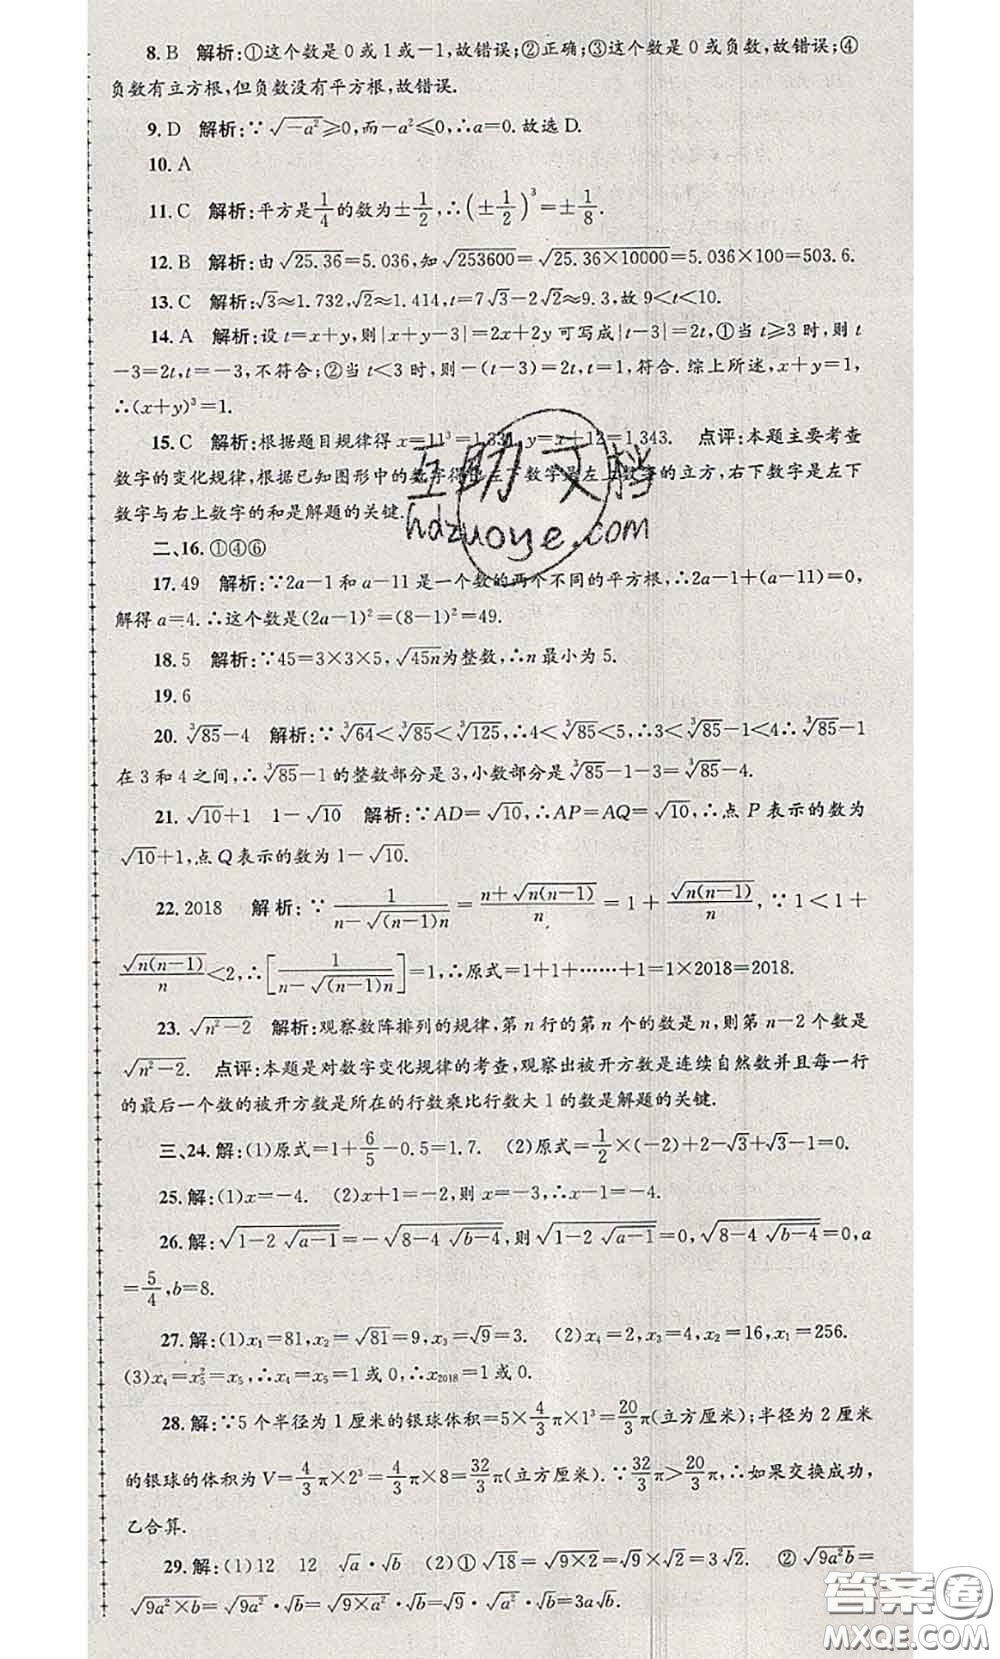 8. B 解析:①这个数是 0 或 1 或 -1,故错误;②正确;③这个数是 0 或负数,故错误;④
负数有立方根,但负数没有平方根,故错误.
9. D 解析:∵√(-a²)≥0,而-a²≤0,∴a=0.故选 D.
10. A
11. C 解析:平方是1/4的数为±1/2,∴(±1/2)³=±1/8.
12. B 解析:由√25.36=5.036,知√253600=√(25.36×10000)=5.036×100=503.6.
13. C 解析:√3≈1.732,√2≈1.414,t=7√3-2√2≈9.3,故 9<t<10.
14. A 解析:设 t=x+y,则|x+y-3|=2x+2y 可写成|t-3|=2t,①当 t≥3 时,则 t
-3=2t,t=-3,不符合;②当 t<3 时,则-(t-3)=2t,t=1,符合.综上所述,x+y=1,
∴(x+y)³=1.
15. C 解析:根据题目规律得 x=11³=1,331,y=x+12=1,343. 点评:本题主要考查
数字的变化规律,根据已知图形中的数字得出左下数字是左上数字的立方,右下数字是左下
数字与右上数字的和是解题的关键.
二、16. ①④⑥
17. 49 解析:∵2a-1 和 a-11 是一个数的两个不同的平方根,∴2a-1+(a-11)=0,
解得 a=4.∴这个数是(2a-1)²=(8-1)²=49.
18. 5 解析:∵45=3×3×5,√45n为整数,∴n 最小为 5.
19. 6
20. ∛85-4 解析:∵∛64<∛85<∛125,∴4<∛85<5,∴3<∛85-1<4∴∛85-1
在 3 和 4 之间,∴∛85-1 的整数部分是 3,小数部分是∛85-1-3=∛85-4.
21. √10+1 1-√10 解析:∵AD=√10,∴AP=AQ=√10,∴点 P 表示的数为
√10+1,点 Q 表示的数为 1-√10.
22. 2018 解析:∵1/(n-√((n-1)n))=(n+√(n(n-1)))/n=1+√(n(n-1))/n,∵1<1+
√(n(n-1))/n<2,∴[1/(n-√((n-1)n))]=1,∴原式=1+1+……+1=1×2018=2018.
23. √(n²-2) 解析:观察数阵排列的规律,第 n 行的第 n 个的数是 n,则第 n-2 个数是
√(n²-2). 点评:本题是对数字变化规律的考查,观察出被开方数是连续自然数并且每一行
的最后一个数的被开方数是所在的行数乘比行数大 1 的数是解题的关键.
三、24. 解:(1)原式=1+6/5-0.5=1.7. (2)原式=1/2×(-2)+2-√3+√3-1=0.
25. 解:(1)x=-4. (2)x+1=-2,则 x=-3,∴x-1=-4.
26. 解:√(1-2√(a-1))=-√(8-4√(b-4)),则√(1-2√(a-1))=0,√(8-4√(b-4))=0,a
=5/4,b=8.
27. 解:(1)x₁=81,x₂=√81=9,x₃=√9=3. (2)x₄=2,x₃=4,x₂=16,x₁=256.
(3)x₄=x₅²=x₅,∴x₄=x₅=1 或 0,∴x₂₀₁₈=1 或 0.
28. 解:∵5 个半径为 1 厘米的银球体积=5×4/3π×1³=20/3π(立方厘米);半径为 2 厘米
的银球的体积为 V=4/3π×2³=4/3π×8=32/3π(立方厘米).∵32/3π>20/3π,∴如果交换成功,
乙合算.
29. 解:(1)12 12 √a·√b (2)①√18=√(9×2)=√9×√2=3√2. ②√(9a²b)=
√(9a²×b)=√(9a²)·√b=√(9×a²)·√b=√9·√(a²)·√b=3a√b.
互助文档
hdzuoye.com
答案圈
MXQE.COM